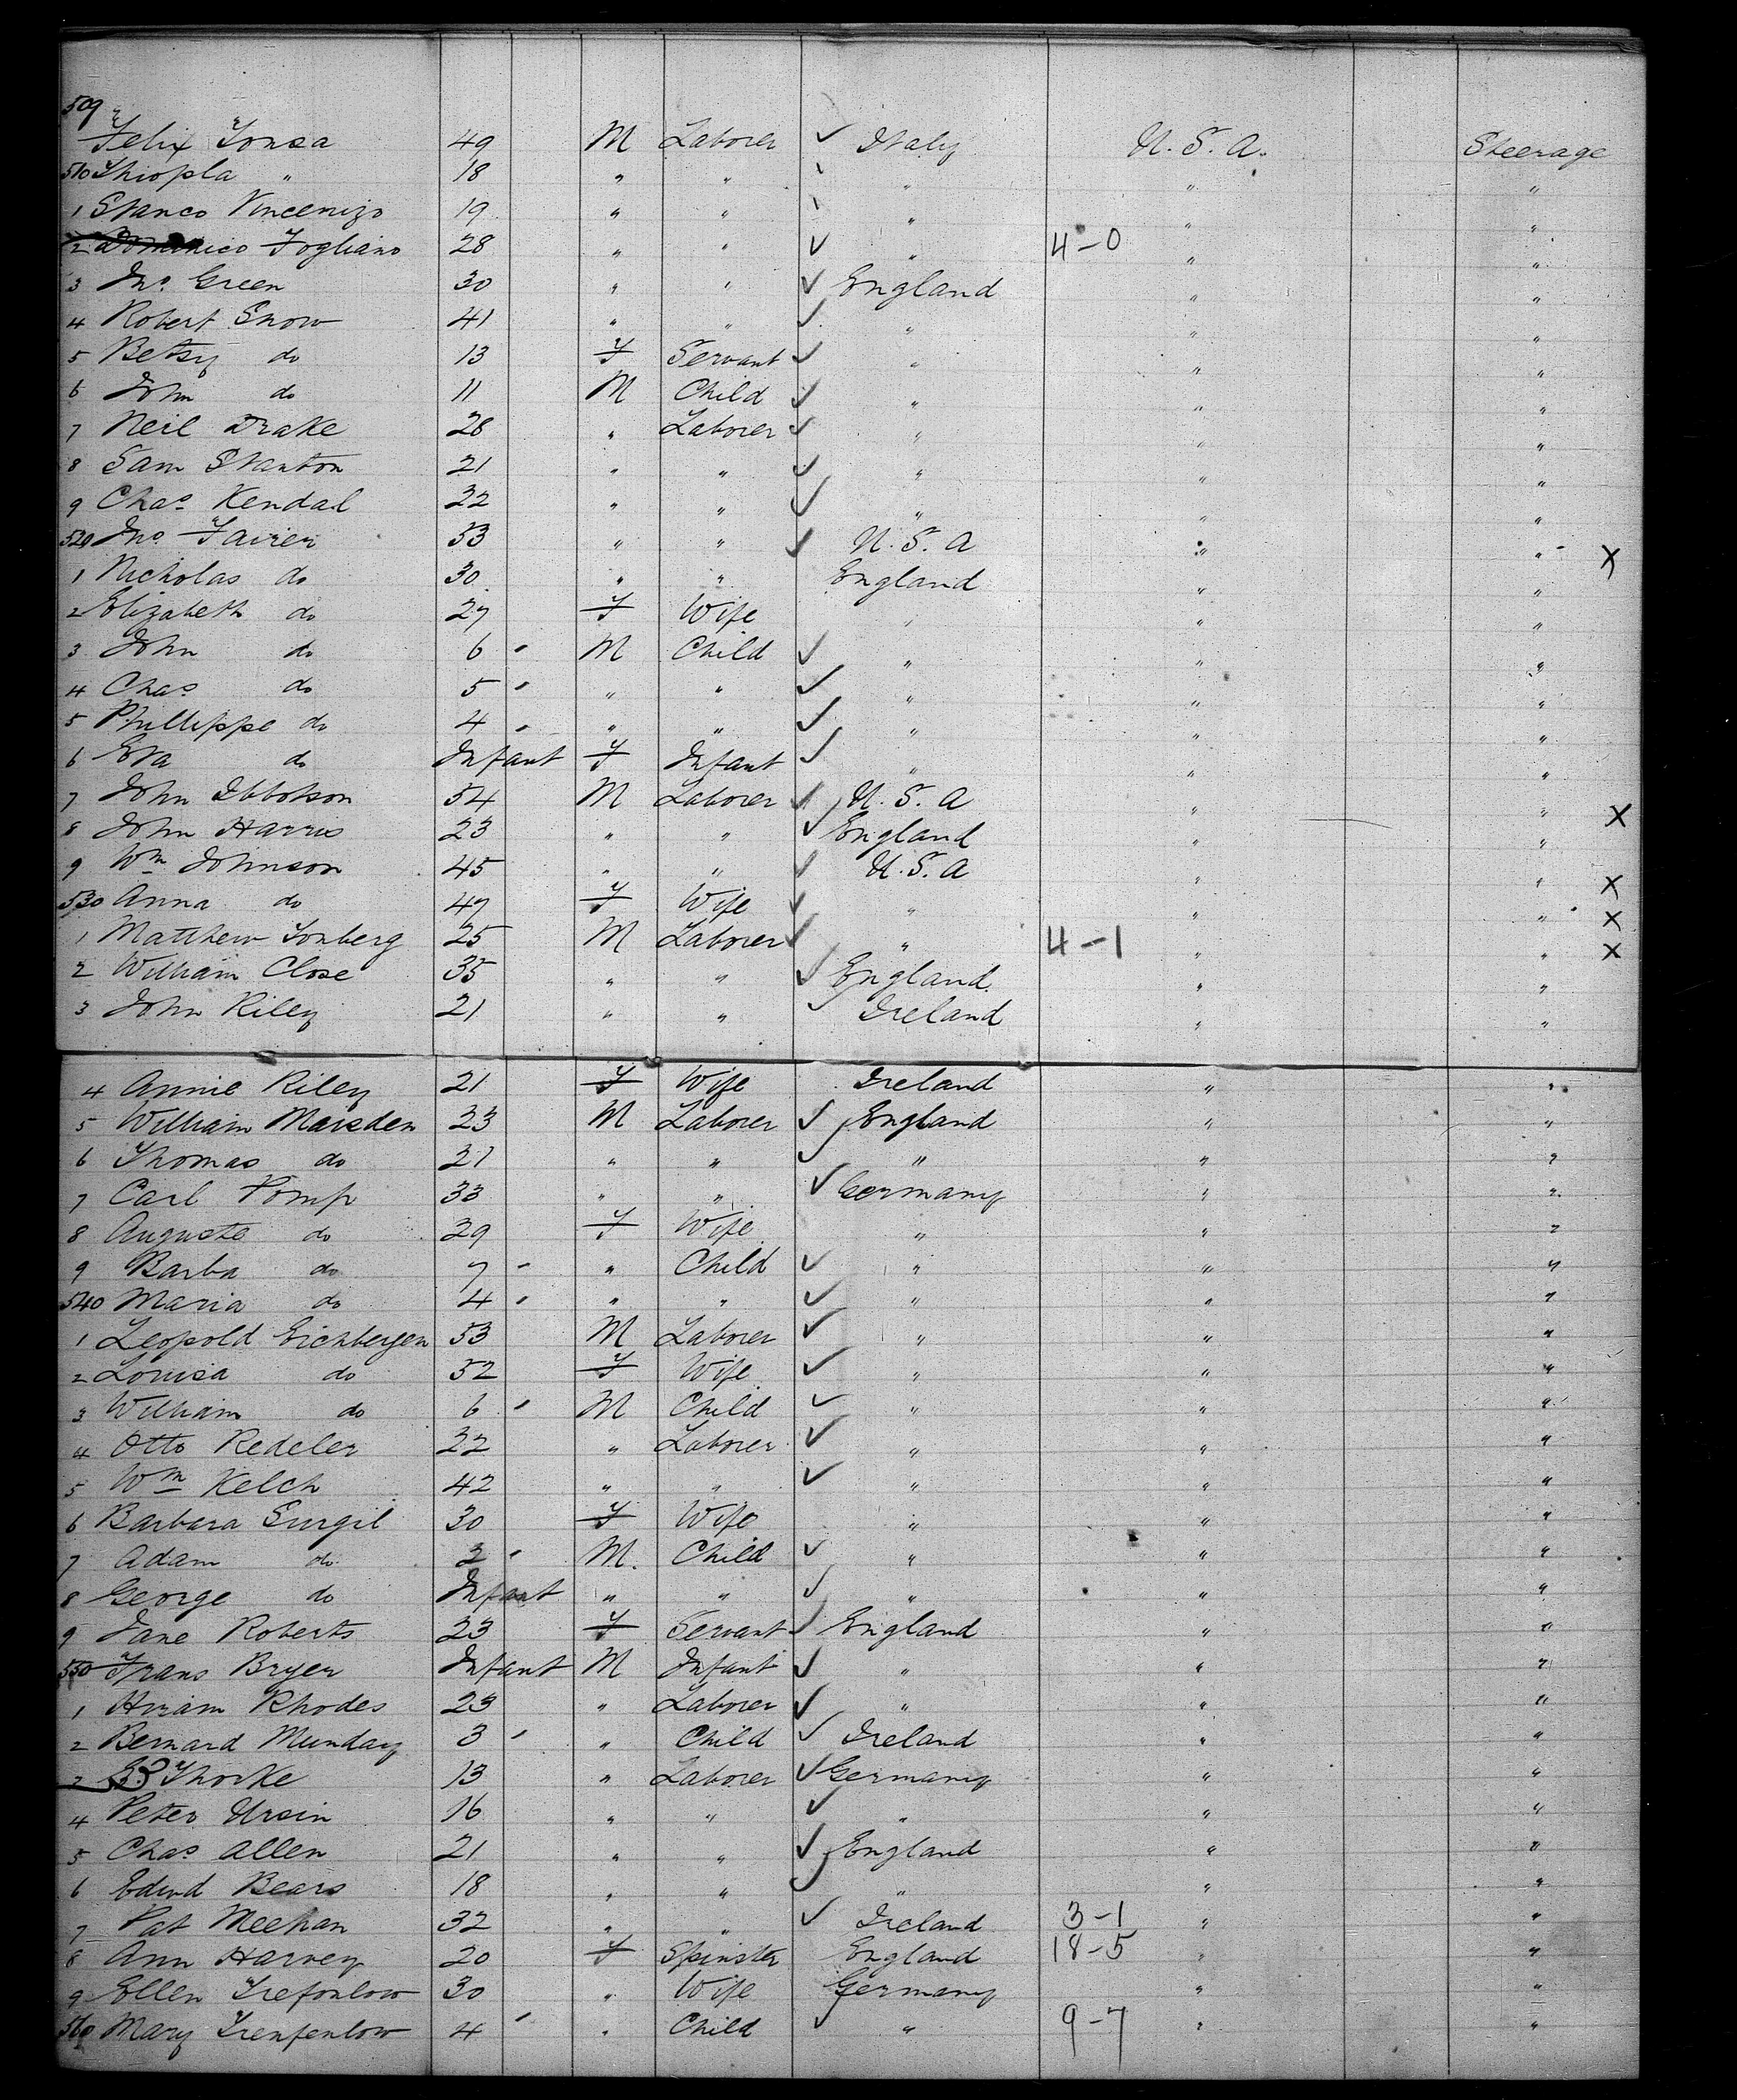 509
Felix Tonsa 49 M Laborer ✓ Italy U.S.A. Steerage
510 Thiopla " 18 " " " " "
1 Stanco Vincenizo 19 " " " " "
2 Dominico Fogliano 28 " " ✓ " 4-0 " "
3 Jno. Green 30 " " ✓ England " "
4 Robert Snow 41 " " ✓ " " "
5 Betsy do 13 F Servant ✓ " " "
6 John do 11 M Child ✓ " " "
7 Neil Drake 28 " Laborer ✓ " " "
8 Sam Stanton 21 " " ✓ " " "
9 Chas Kendal 22 " " ✓ " " "
520 Jno. Fairer 53 " " ✓ U.S.A " " X
1 Nicholas do 30 " " England " "
2 Elizabeth do 27 F Wife " " "
3 John do 6 M Child ✓ " " "
4 Chas do 5 " " ✓ " " "
5 Phillippe do 4 " " ✓ " " "
6 Eva do Infant F Infant ✓ " " "
7 John Ibbotson 54 M Laborer ✓ U.S.A " " X
8 John Harris 23 " " ✓ England " "
9 Wm Johnson 45 " " ✓ U.S.A " " X
530 Anna do 47 F Wife ✓ " " " X
1 Matthew Tonberg 25 M Laborer ✓ " 4-1 " " X
2 William Close 35 " " ✓ England " "
3 John Riley 21 " " ✓ Ireland " "
4 Annie Riley 21 F Wife Ireland " "
5 William Marsden 23 M Laborer ✓ England " "
6 Thomas do 21 " " ✓ " " "
7 Carl Pomp 33 " " ✓ Germany " "
8 Auguste do 29 F Wife " " "
9 Barba do 7 " Child ✓ " " "
540 Maria do 4 " " ✓ " " "
1 Leopold Eichbergen 53 M Laborer ✓ " " "
2 Louisa do 52 F Wife ✓ " " "
3 William do 6 M Child ✓ " " "
4 Otto Redeler 22 " Laborer ✓ " " "
5 Wm Kelch 42 " " ✓ " " "
6 Barbara Surgil 30 F Wife " " "
7 Adam do 2 M. Child ✓ " " "
8 George do Infant " " ✓ " " "
9 Jane Roberts 23 F Servant ✓ England " "
550 Frans Bryer Infant M Infant ✓ " " "
1 Hiram Rhodes 23 " Laborer ✓ " " "
2 Bernard Munday 3 " Child ✓ Ireland " "
3 Thorke 13 " Laborer ✓ Germany " "
4 Peter Ursin 16 " " ✓ " " "
5 Chas Allen 21 " " ✓ England " "
6 Edwd Bears 18 " " ✓ " " "
7 Pat Meehan 32 " " ✓ Ireland 3-1 " "
8 Ann Harvey 20 F Spinster England 18-5 " "
9 Ellen Trefonlow 30 " Wife Germany " "
560 Mary Trenfenlow 4 " Child ✓ " 9-7 " "